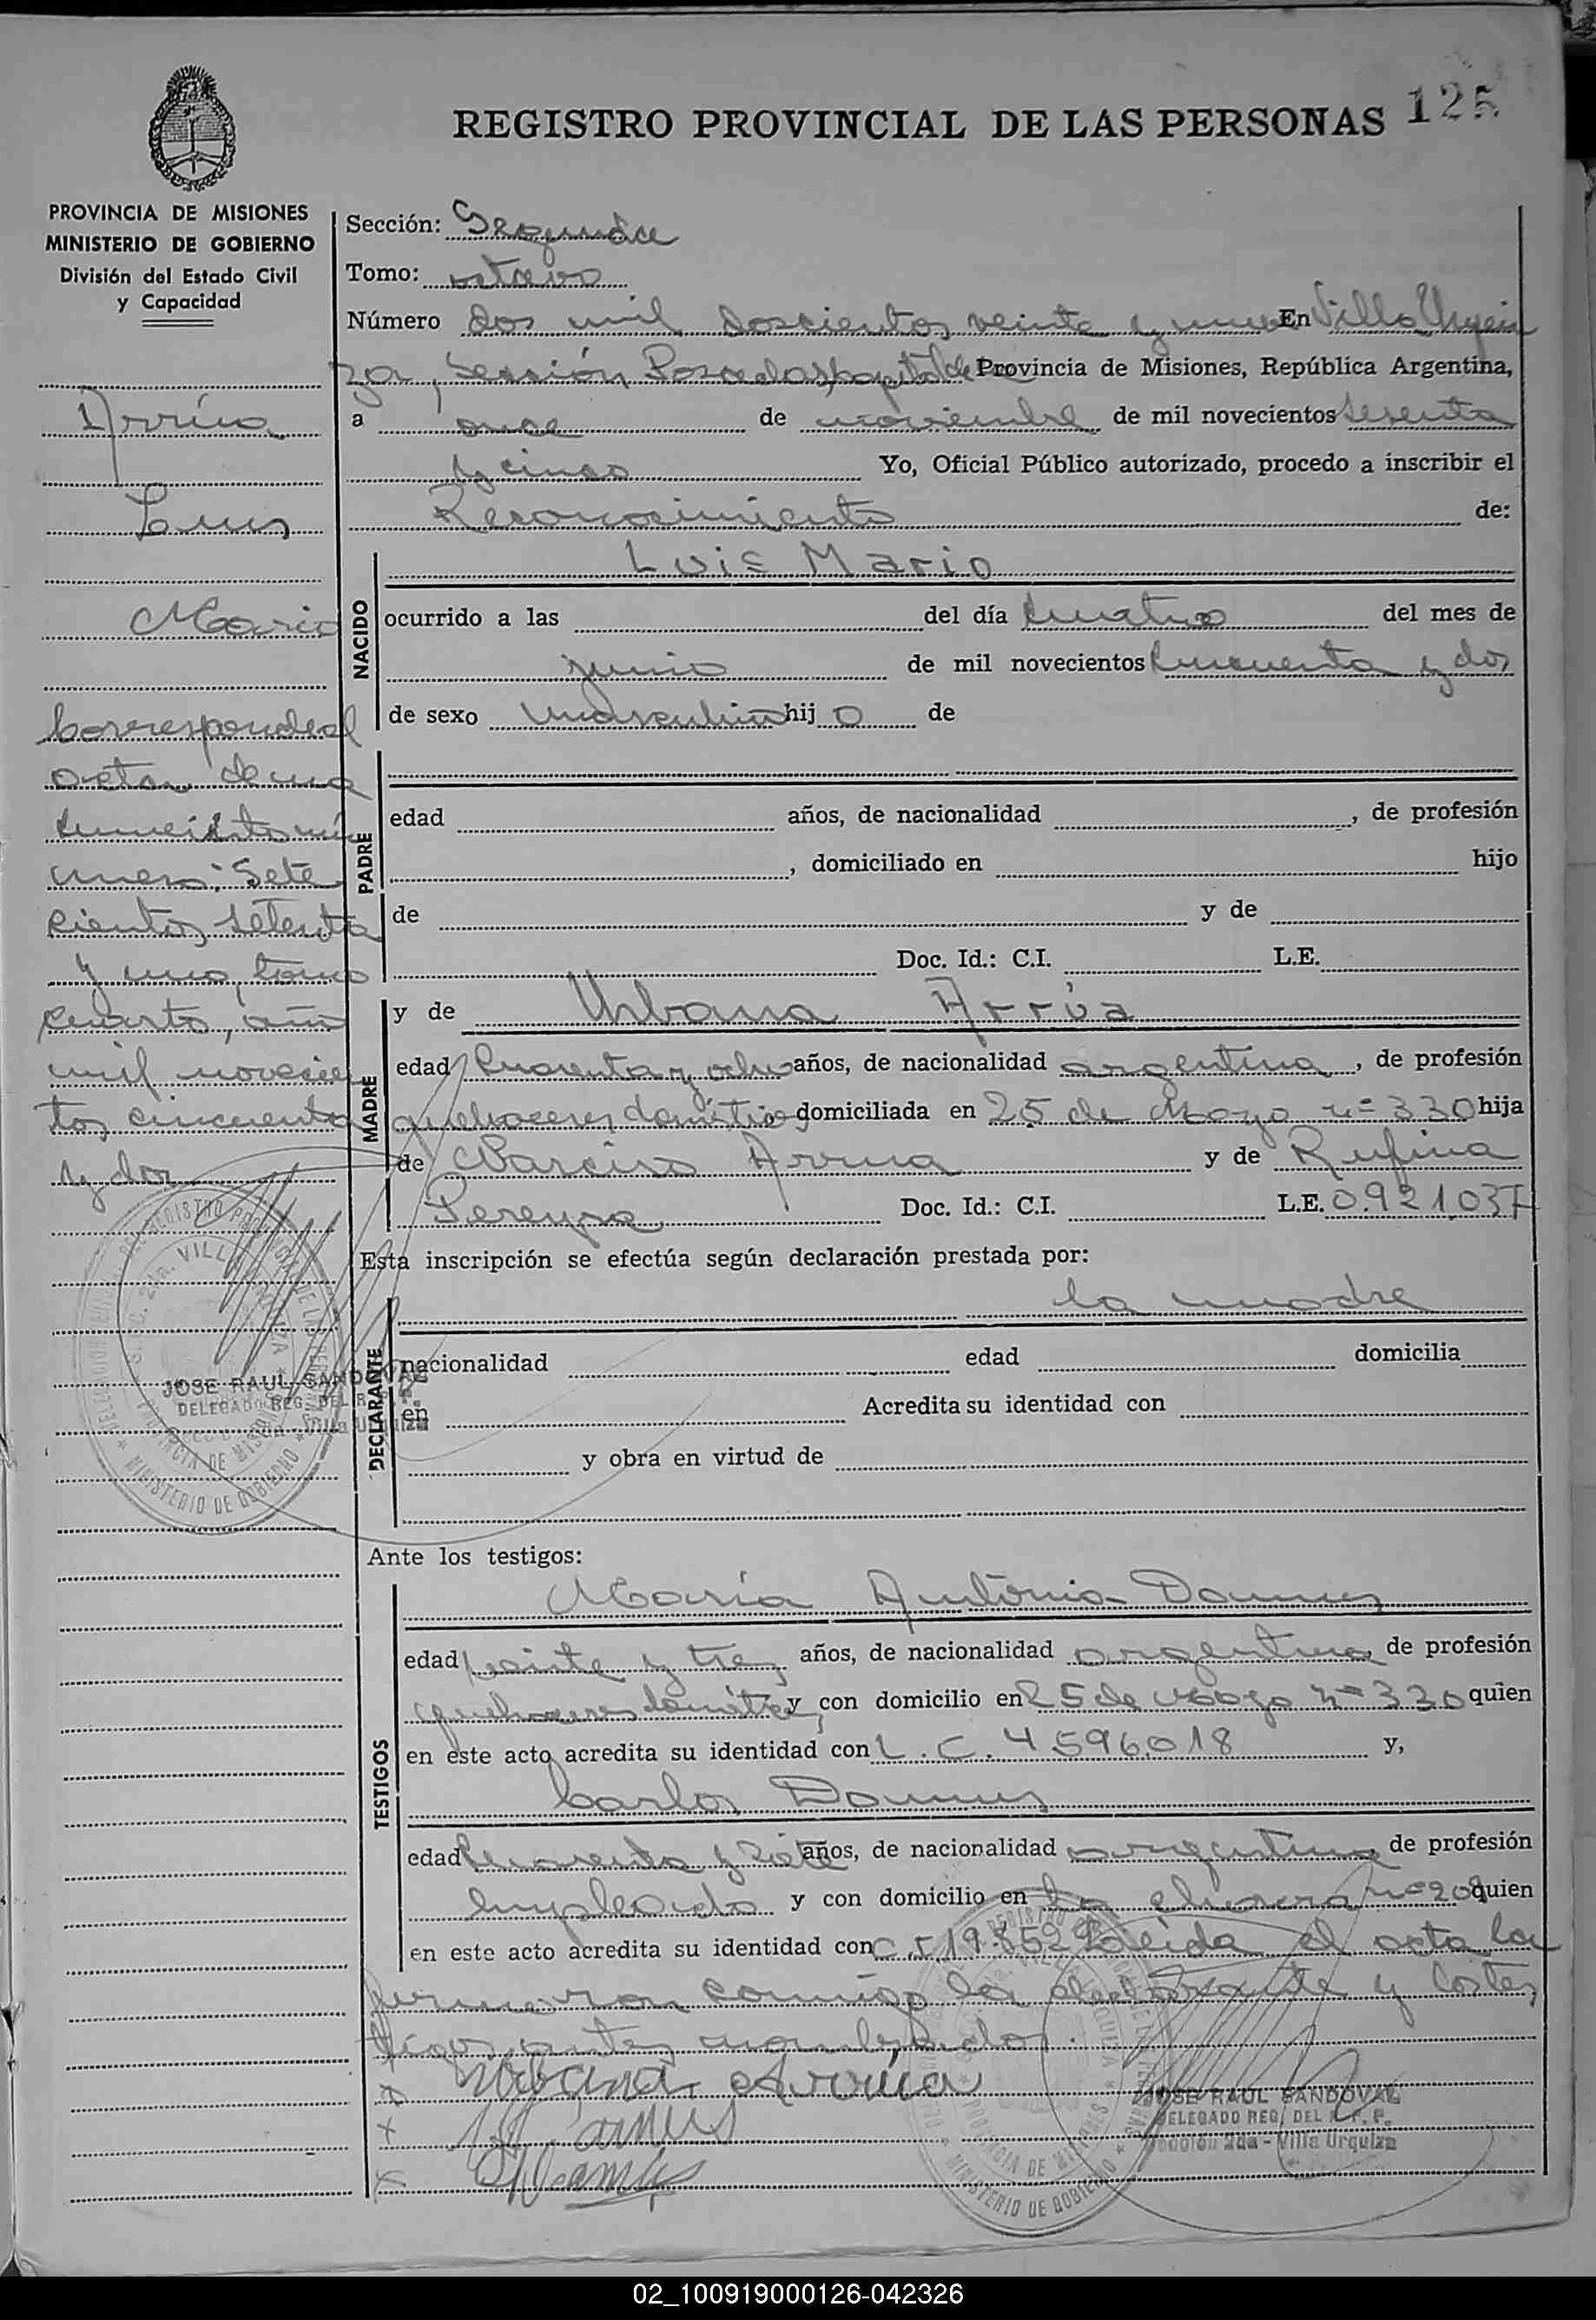 REGISTRO PROVINCIAL DE LAS PERSONAS 125
PROVINCIA DE MISIONES
MINISTERIO DE GOBIERNO
División del Estado Civil
y Capacidad
Arrúa
Luis
Mario
Corresponde al
acta de na
cimiento nú
mero: Sete
cientos setenta
y uno, tomo
cuarto, año
mil novecien
tos cincuenta
y dos
JOSE RAUL SANDOVAL
DELEGADO REG. DEL R. P. P.
Villa Urquiza
Sección: Segunda
Tomo: octavo
Número dos mil doscientos veinte y nueve En Villa Urquiza
za, sección Posadas, capital de Provincia de Misiones, República Argentina,
a once de noviembre de mil novecientos sesenta
y cinco Yo, Oficial Público autorizado, procedo a inscribir el
Reconocimiento de:
NACIDO
Luis Mario
ocurrido a las del día cuatro del mes de
junio de mil novecientos cincuenta y dos
de sexo masculino hijo de
PADRE
edad años, de nacionalidad , de profesión
, domiciliado en hijo
de y de
Doc. Id.: C.I. L.E.
MADRE
y de Urbana Arrúa
edad cuarenta y ocho años, de nacionalidad argentina, de profesión
quehaceres domésticos domiciliada en 25 de Mayo nº 330 hija
de Narciso Arrua y de Rufina
Pereyra Doc. Id.: C.I. L.E. 0.921.037
Esta inscripción se efectúa según declaración prestada por:
DECLARANTE
la madre
nacionalidad edad domicilia
en Acredita su identidad con
y obra en virtud de
Ante los testigos:
TESTIGOS
María Antonia Damus
edad veinte y tres años, de nacionalidad argentina de profesión
quehaceres domést. y con domicilio en 25 de Mayo nº 330 quien
en este acto acredita su identidad con L.C. 4.596.018 y,
Carlos Damus
edad cuarenta y siete años, de nacionalidad argentina de profesión
empleado y con domicilio en La chacra nº 208 quien
en este acto acredita su identidad con C.I. Leida el acta la
firmaron conmigo la declarante y los tes
tigos antes nombrados.
x Urbana Arrua
x Damus
x Damus
JOSE RAUL SANDOVAL
DELEGADO REG. DEL R. P. P.
Sección 2da - Villa Urquiza
02_100919000126-042326